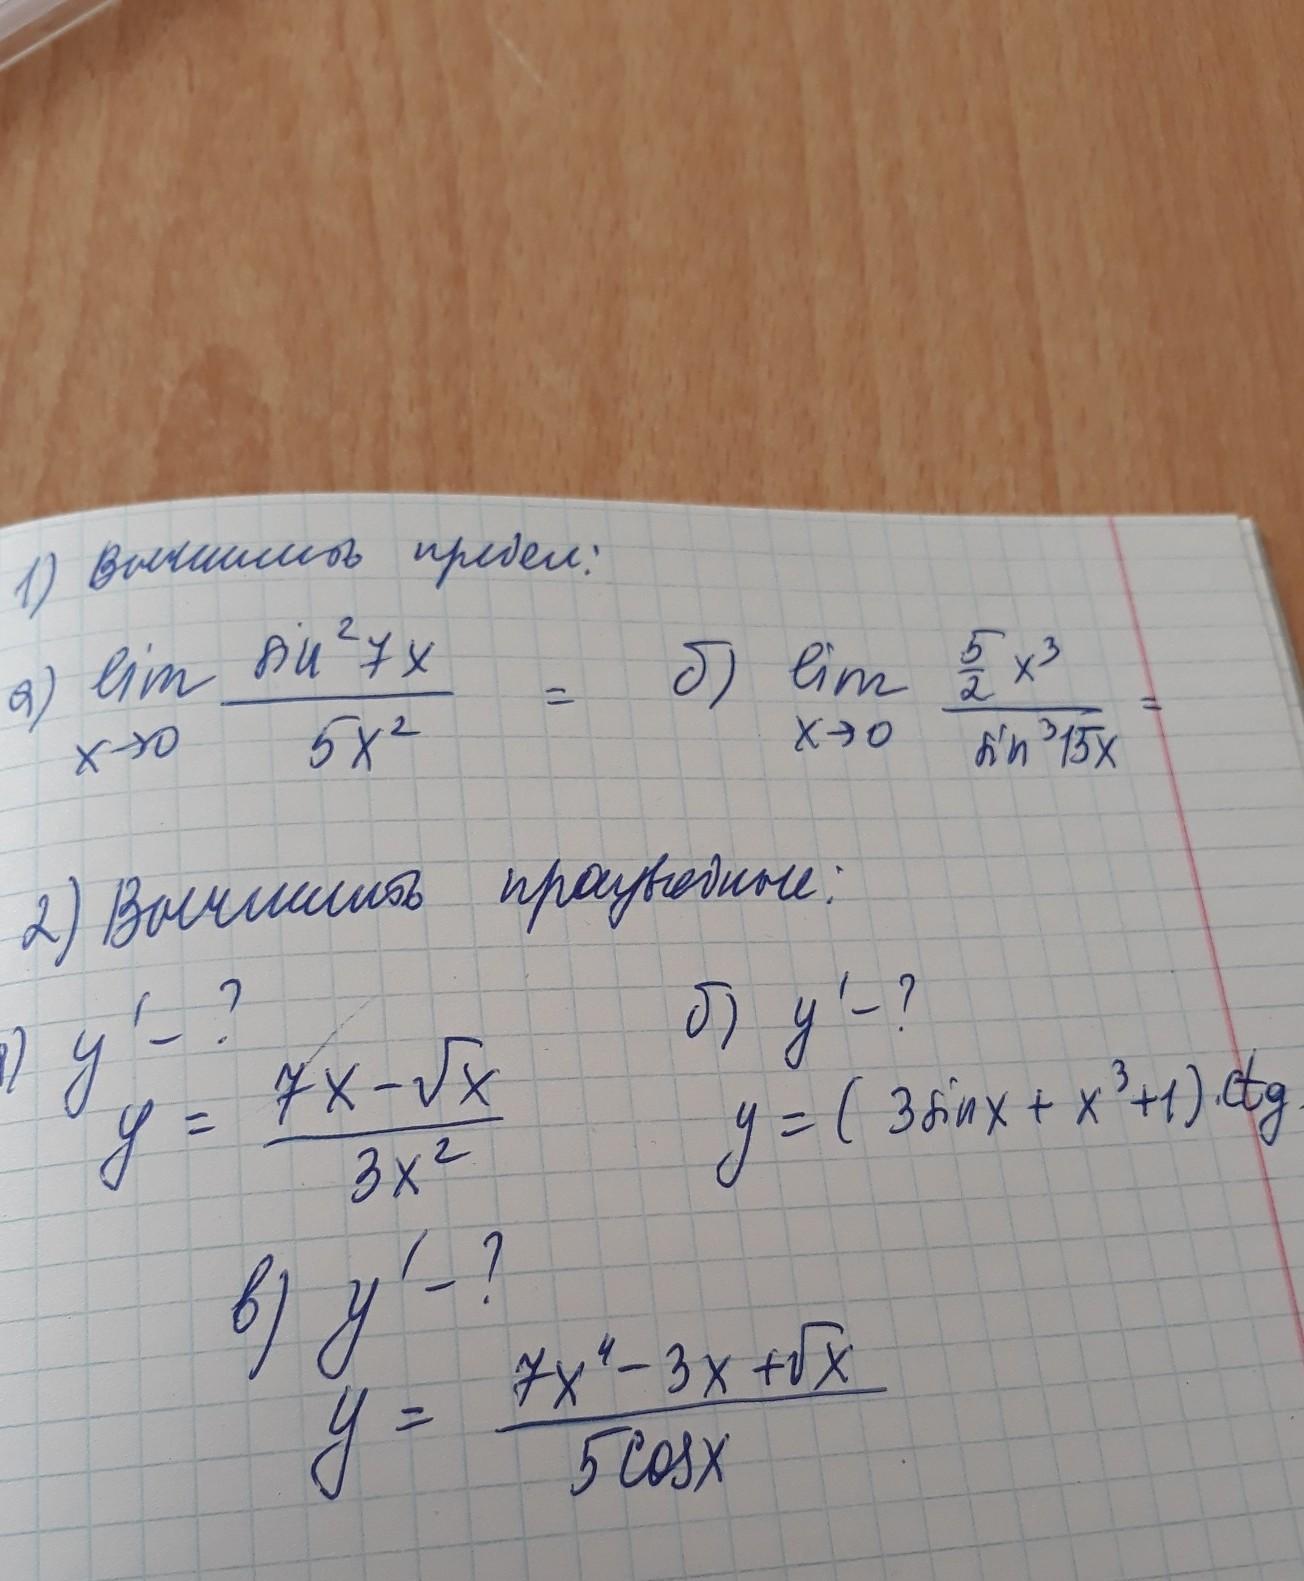 1) Вычислить предел:
а) lim x→0 sin²7x / 5x² = б) lim x→0 5/2 x³ / sin³15x =
2) Вычислить производные:
y' - ? б) y' - ?
y = 7x - √x / 3x² y = (3sinx + x³ + 1) · ctg
в) y' - ?
y = 7x⁴ - 3x + √x / 5cosx